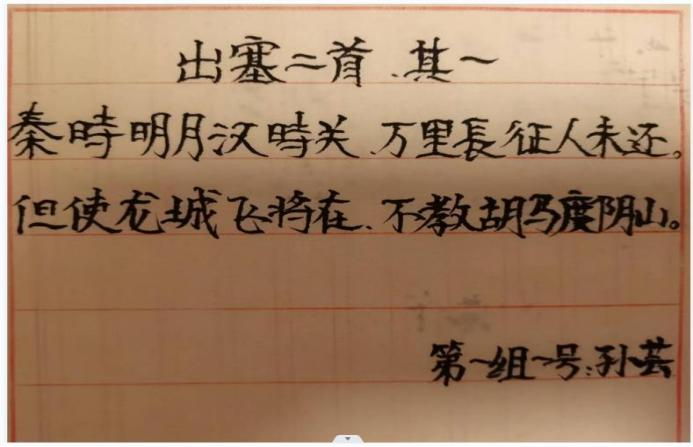 出塞二首.其一
秦時明月汉時关.万里長征人未还。
但使龙城飞将在.不教胡马度阴山。
第一组一号:孙芸